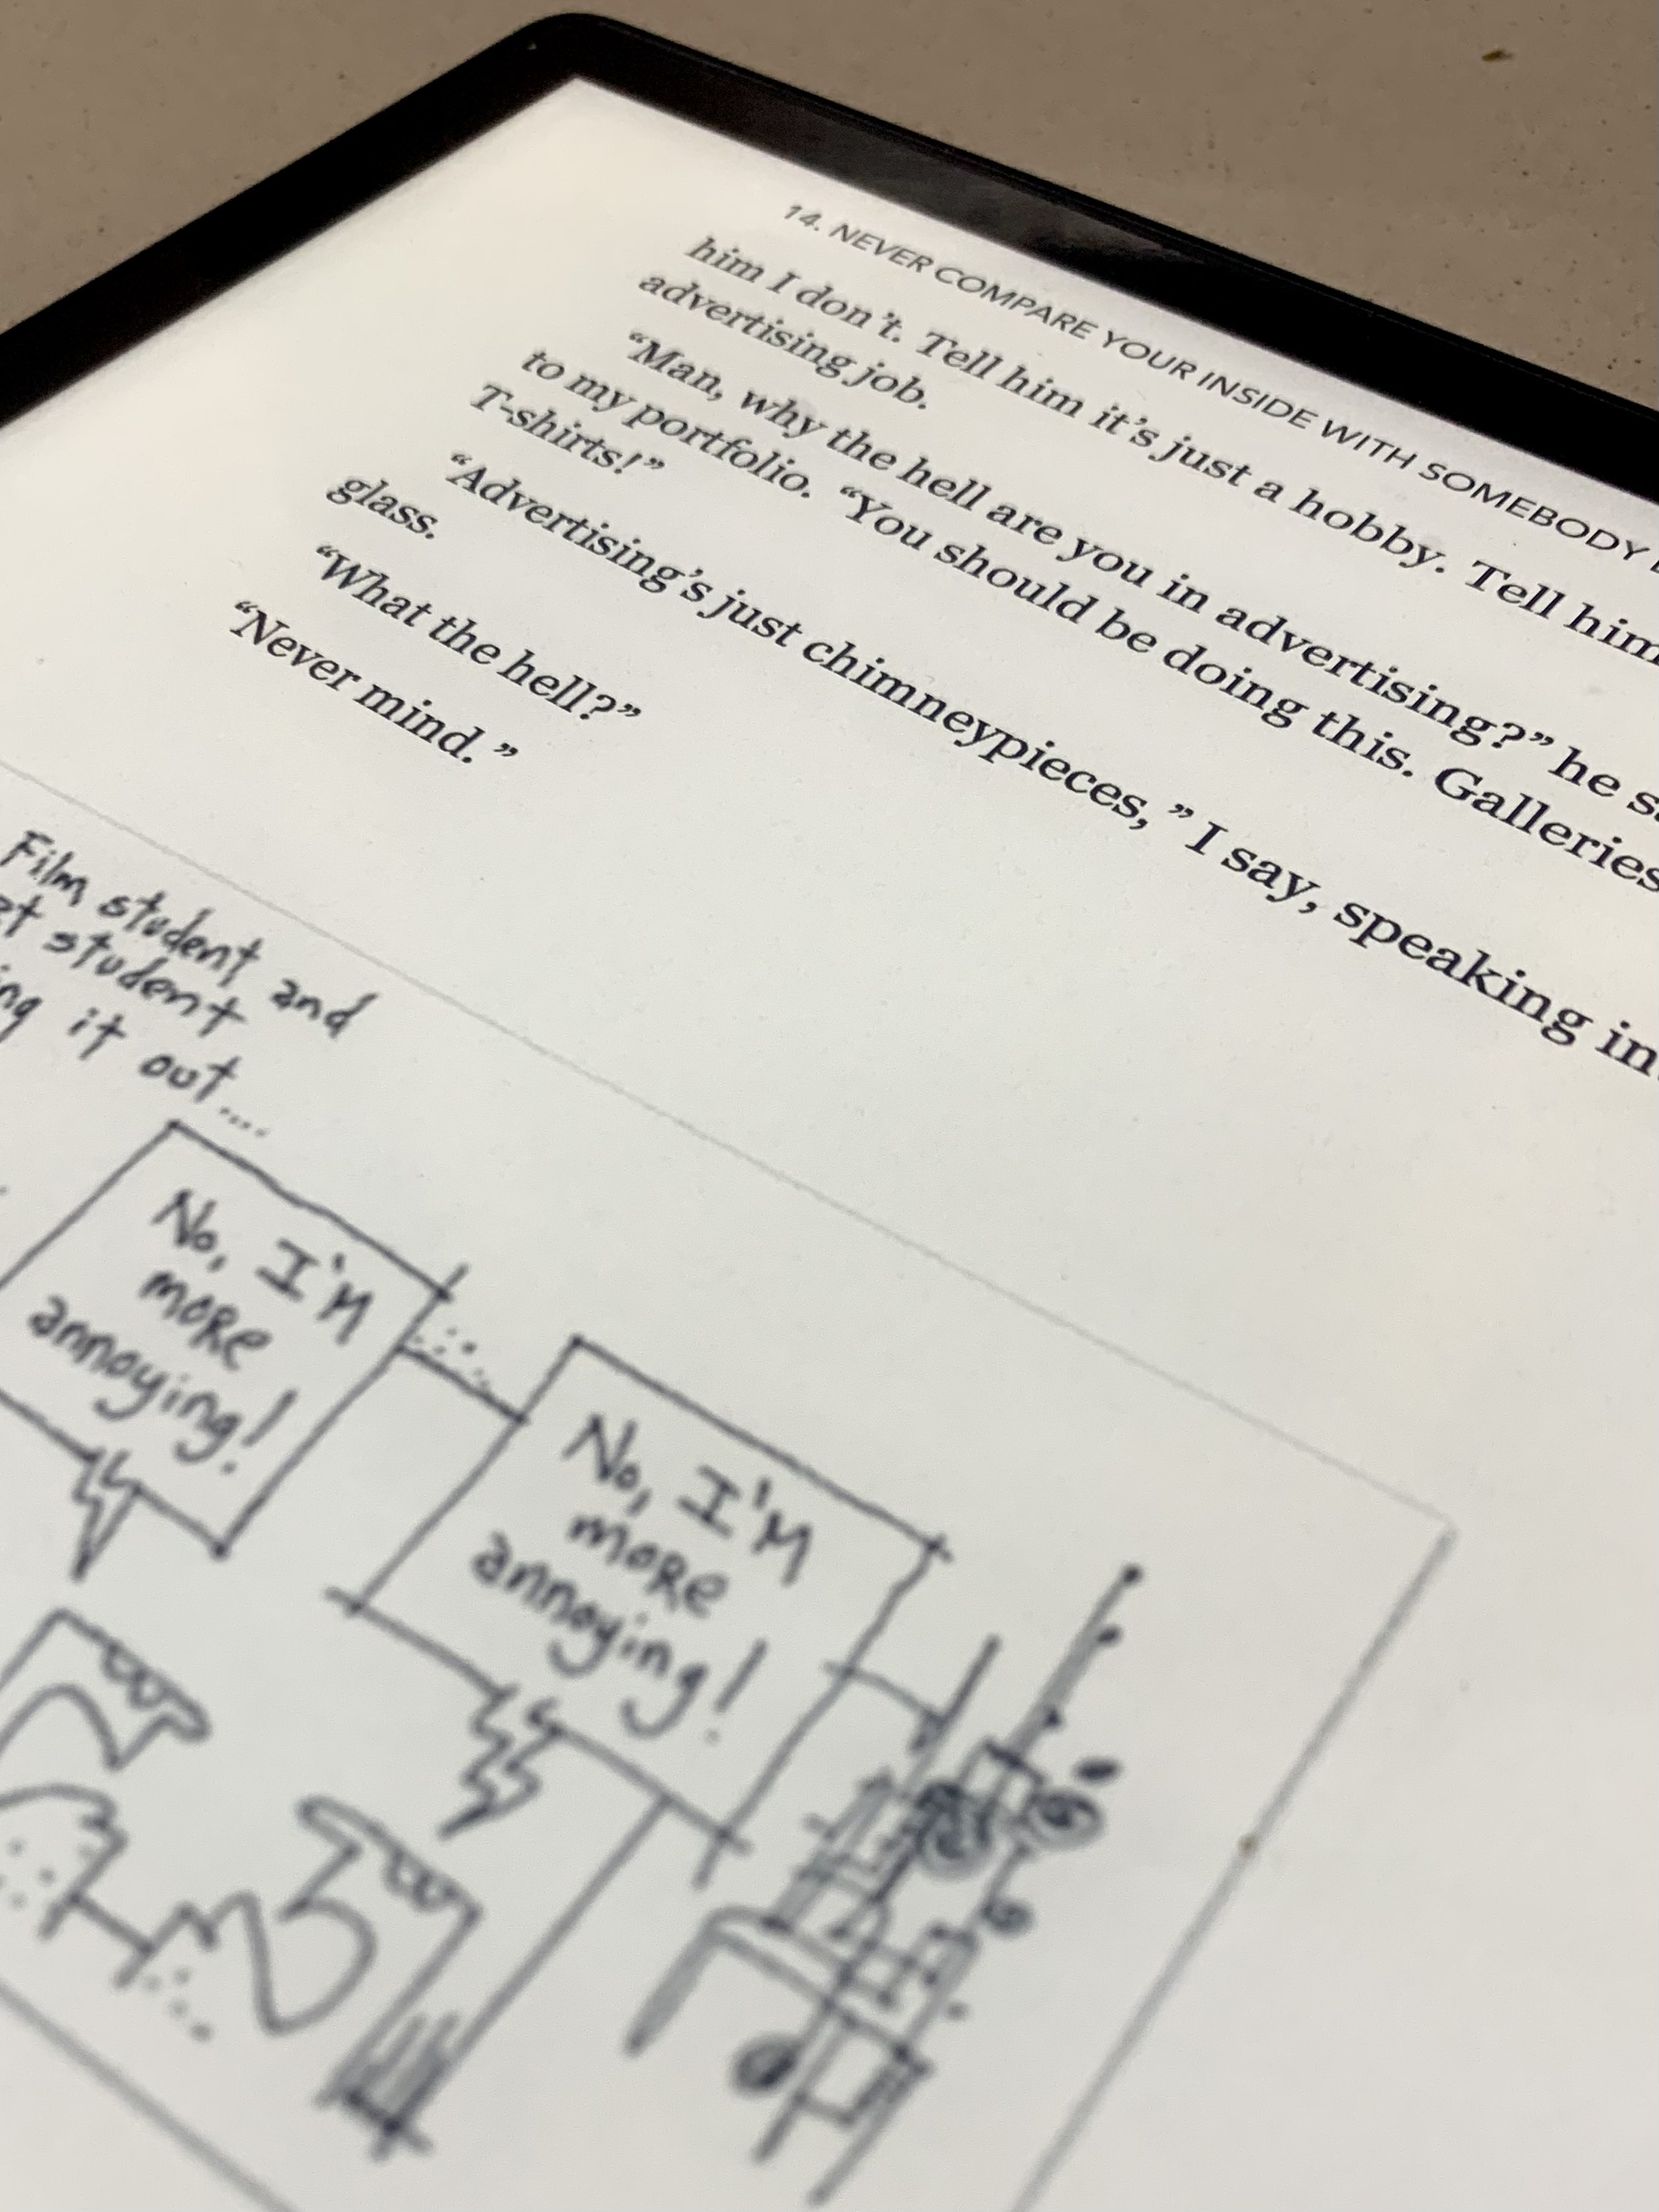 14. NEVER COMPARE YOUR INSIDE WITH SOMEBODY
him I don't. Tell him it's just a hobby. Tell him
advertising job.
“Man, why the hell are you in advertising?” he
to my portfolio. “You should be doing this. Galleries
T-shirts!”
“Advertising's just chimneypieces,” I say, speaking
glass.
“What the hell?”
“Never mind.”
Film student and
student
it out....
No, I'M
more
annoying!
No, I'M
more
annoying!